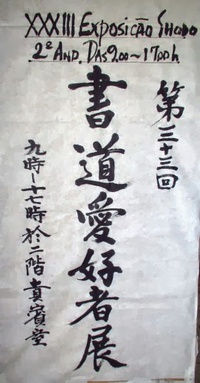 XXXIII EXPOSIÇÃO SHODO
2º AND. DAS 9:00 ~ 17:00 h
第三十三回
書道愛好者展
九時〜十七時於二階貴賓室